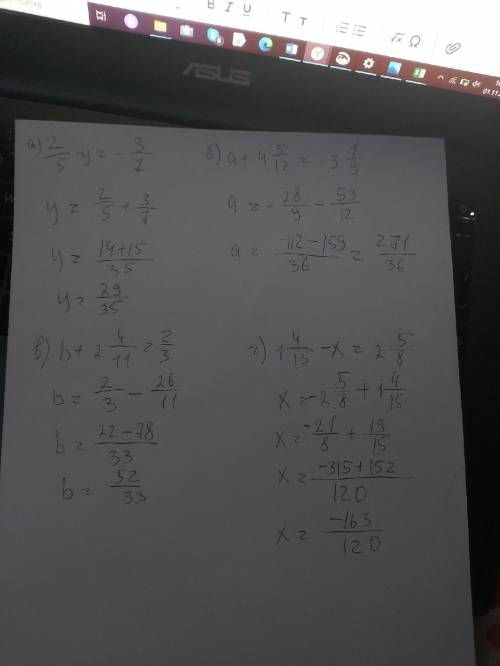 B I U
T T
√x Ω
ASUS
01.11.
а) 2/5 - y = - 3/7
y = 2/5 + 3/7
y = 14+15/35
y = 29/35
б) a + 4 5/12 = -3 1/9
a = - 28/9 - 53/12
a = -112-159/36 = 271/36
в) b + 2 4/11 = 2/3
b = 2/3 - 26/11
b = 22-78/33
b = 52/33
г) 1 4/15 - x = 2 5/8
x = -2 5/8 + 1 4/15
x = -21/8 + 19/15
x = -315+152/120
x = -163/120